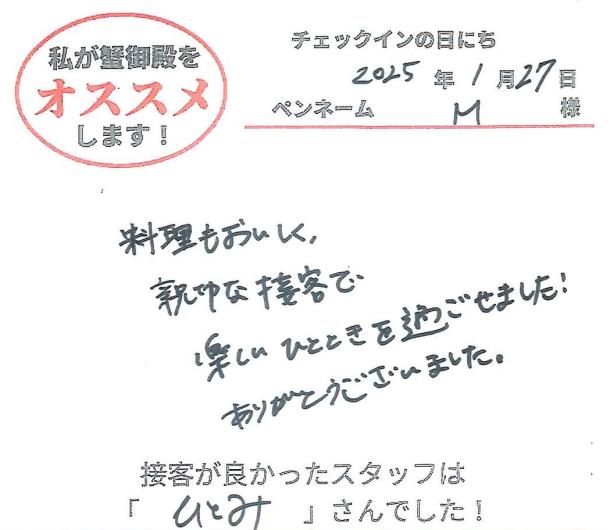 私が蟹御殿を
オススメ
します！
チェックインの日にち
2025 年 1 月 27 日
ペンネーム M 様
料理もおいしく、
親切な接客で
楽しいひとときを過ごせました!
ありがとうございました。
接客が良かったスタッフは
「 ひとみ 」さんでした！